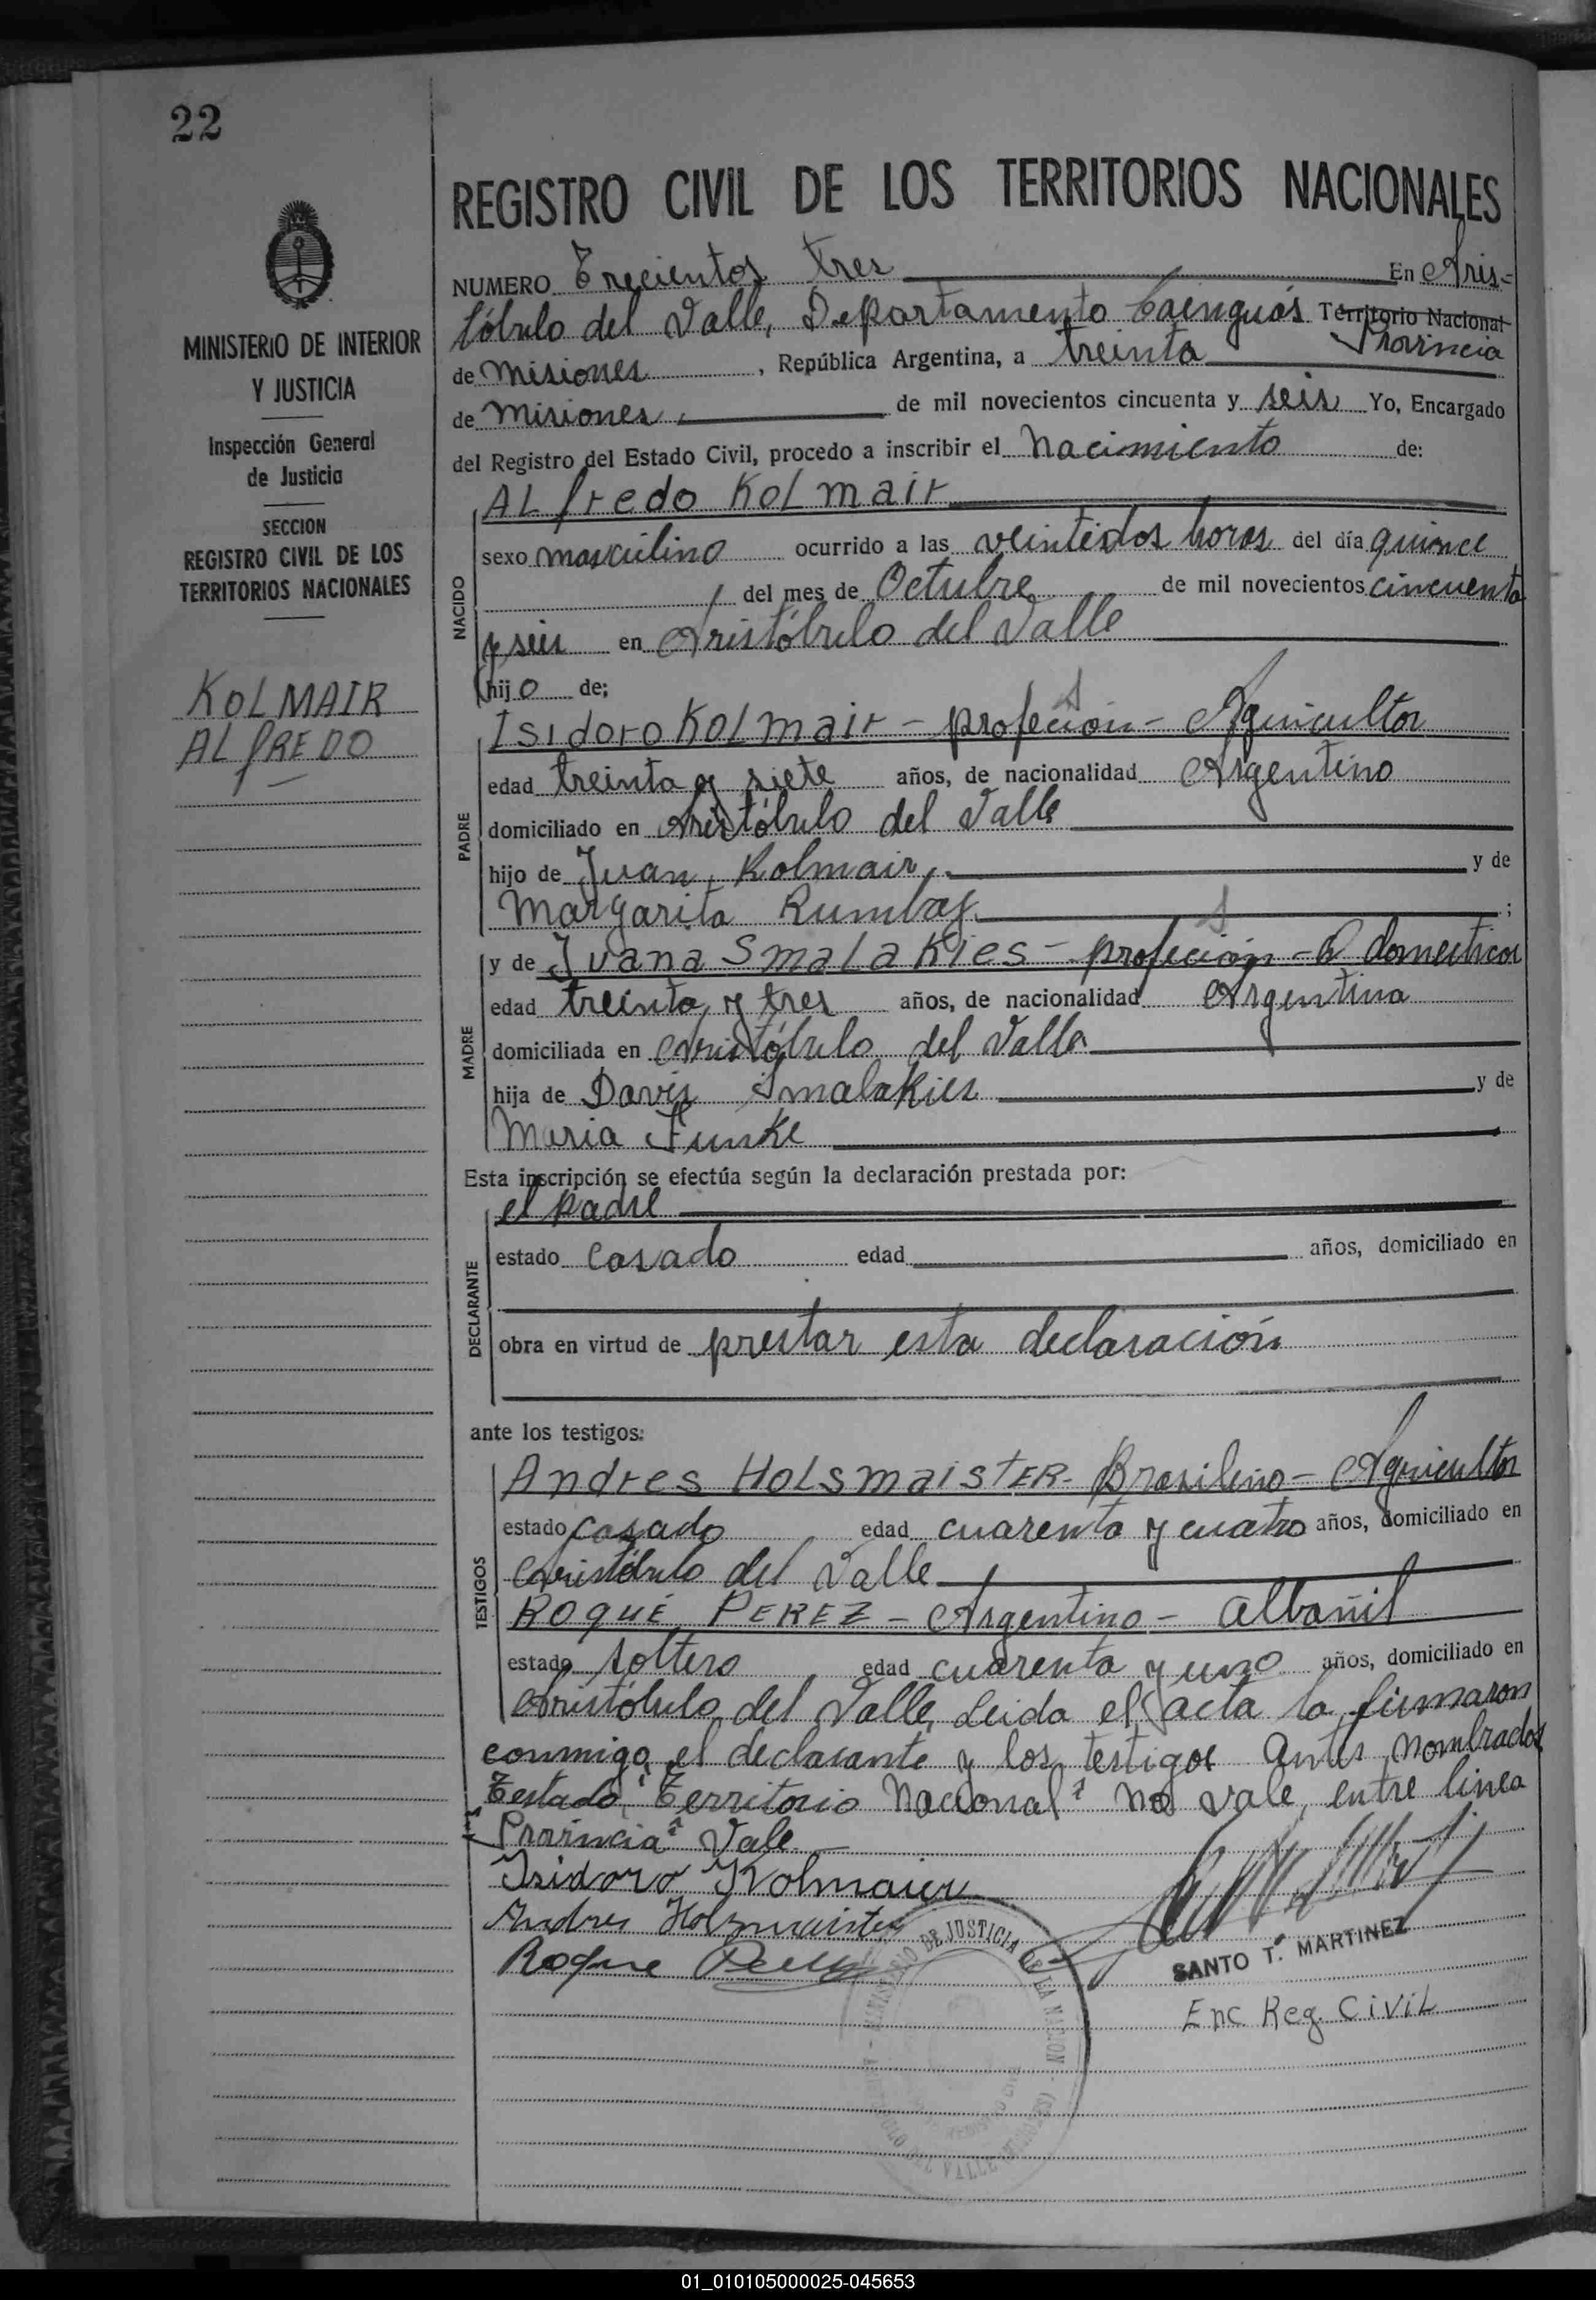 22
MINISTERIO DE INTERIOR
Y JUSTICIA
Inspección General
de Justicia
SECCION
REGISTRO CIVIL DE LOS
TERRITORIOS NACIONALES
KOLMAIR
ALfREDO
REGISTRO CIVIL DE LOS TERRITORIOS NACIONALES
NUMERO Trecientos tres En Aris-
tóbulo del Valle, Departamento Cainguás Territorio Nacional
Provincia
de Misiones, República Argentina, a treinta
de Misiones de mil novecientos cincuenta y seis Yo, Encargado
del Registro del Estado Civil, procedo a inscribir el Nacimiento de:
NACIDO
ALfredo Kolmair
sexo masculino ocurrido a las veintidos horas del día quince
del mes de Octubre de mil novecientos cincuenta
y seis en Aristóbulo del Valle
hijo de;
PADRE
Isidoro Kolmair - profecion - Agricultor
edad treinta y siete años, de nacionalidad Argentino
domiciliado en Aristóbulo del Valle
hijo de Juan Kolmair, y de
Margarita Rumbaj ;
MADRE
y de Juana Smalakies - profeción - Q domesticos
edad treinta y tres años, de nacionalidad Argentina
domiciliada en Aristóbulo del Valle
hija de Davis Smalakies y de
Maria Funke
Esta inscripción se efectúa según la declaración prestada por:
DECLARANTE
el padre
estado Casado edad años, domiciliado en
obra en virtud de prestar esta declaración
ante los testigos:
TESTIGOS
Andres HOLSmaisTER - Brasileño - Agricultor
estado casado edad cuarenta y cuatro años, domiciliado en
Aristóbulo del Valle
ROQUE PEREZ - Argentino - albañil
estado soltero edad cuarenta y uno años, domiciliado en
Aristóbulo del Valle, Leida el acta la firmaron
conmigo, el declarante y los testigos antes nombrados
Testado "Territorio Nacional" no vale, entre linea
"Provincia" Vale
Isidoro Kolmaier
Andres Holzmaister
Roque Perez
MINISTERIO DE JUSTICIA DE LA NACION
SANTO T. MARTINEZ
Enc Reg. CiviL
01_010105000025-045653